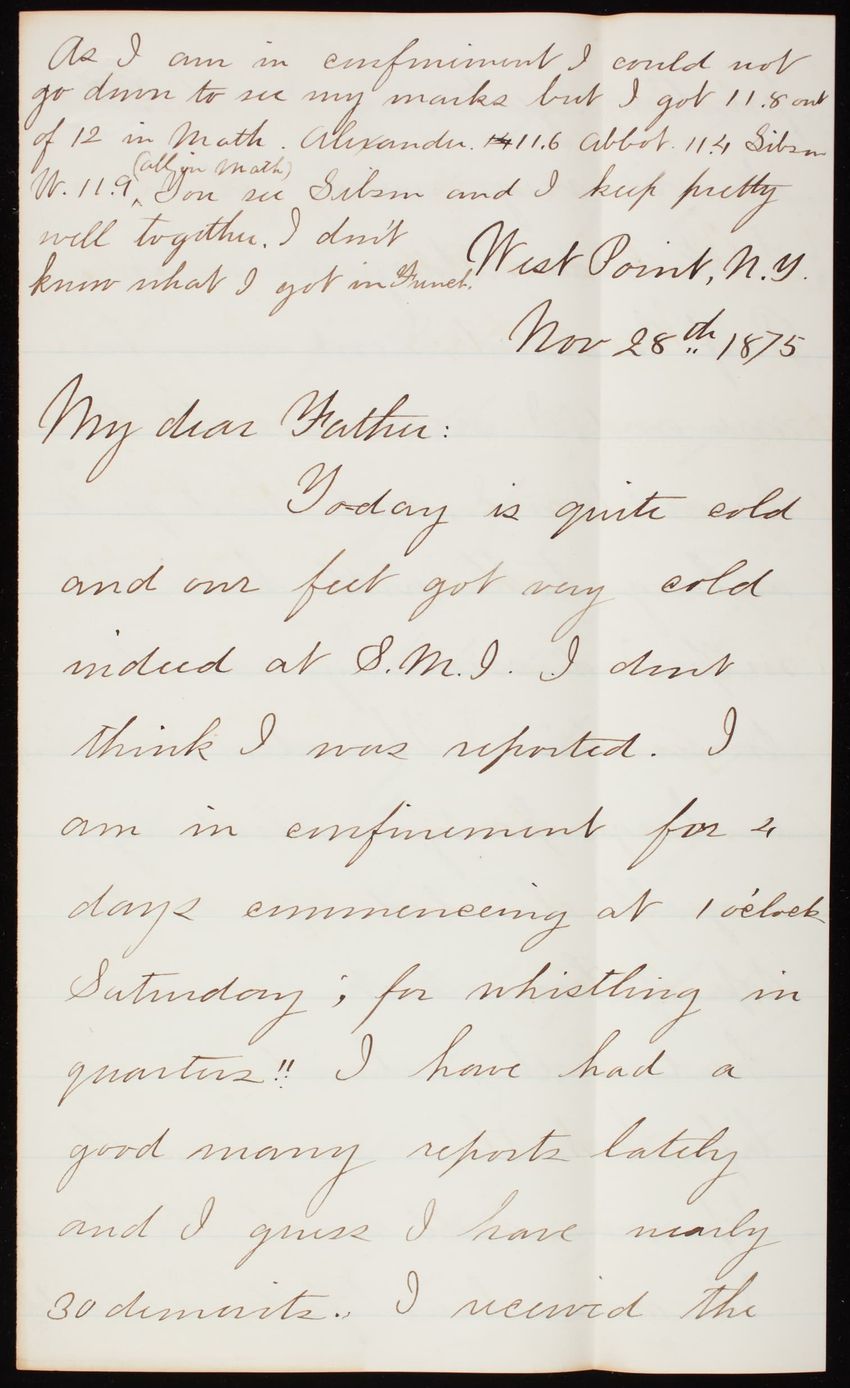 As I am in confiniment I could not
go down to see my marks but I got 11.8 out
of 12 in Math. Alexander. 11.6 Abbot. 11.4 Gibson
(all in Math)
W. 11.9 ^ You see Gibson and I keep pretty
well together. I don't
know what I got in French.
West Point, N.Y.
Nov 28th 1875
My dear Father:
To-day is quite cold
and our feet got very cold
indeed at S.M.I. I dont
think I was reported. I
am in confinement for 4
days commenceing at 1 o'clock
Saturday; for whistling in
quarters!! I have had a
good many reports lately
and I guess I have nearly
30 demerits. I received the